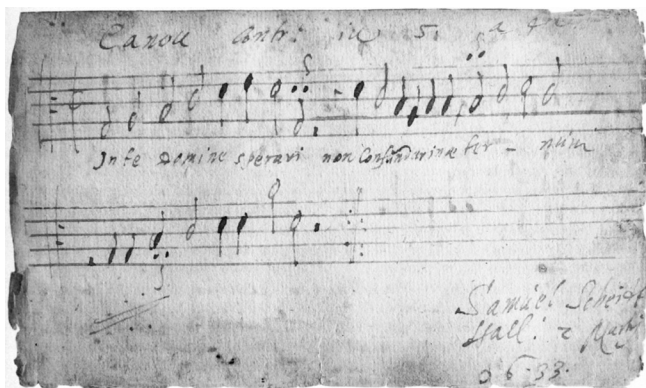 Canon Contr: in 5. a 4
In te Domine speravi non Confundar in æter - num
Samuel Scheidt
Hall: